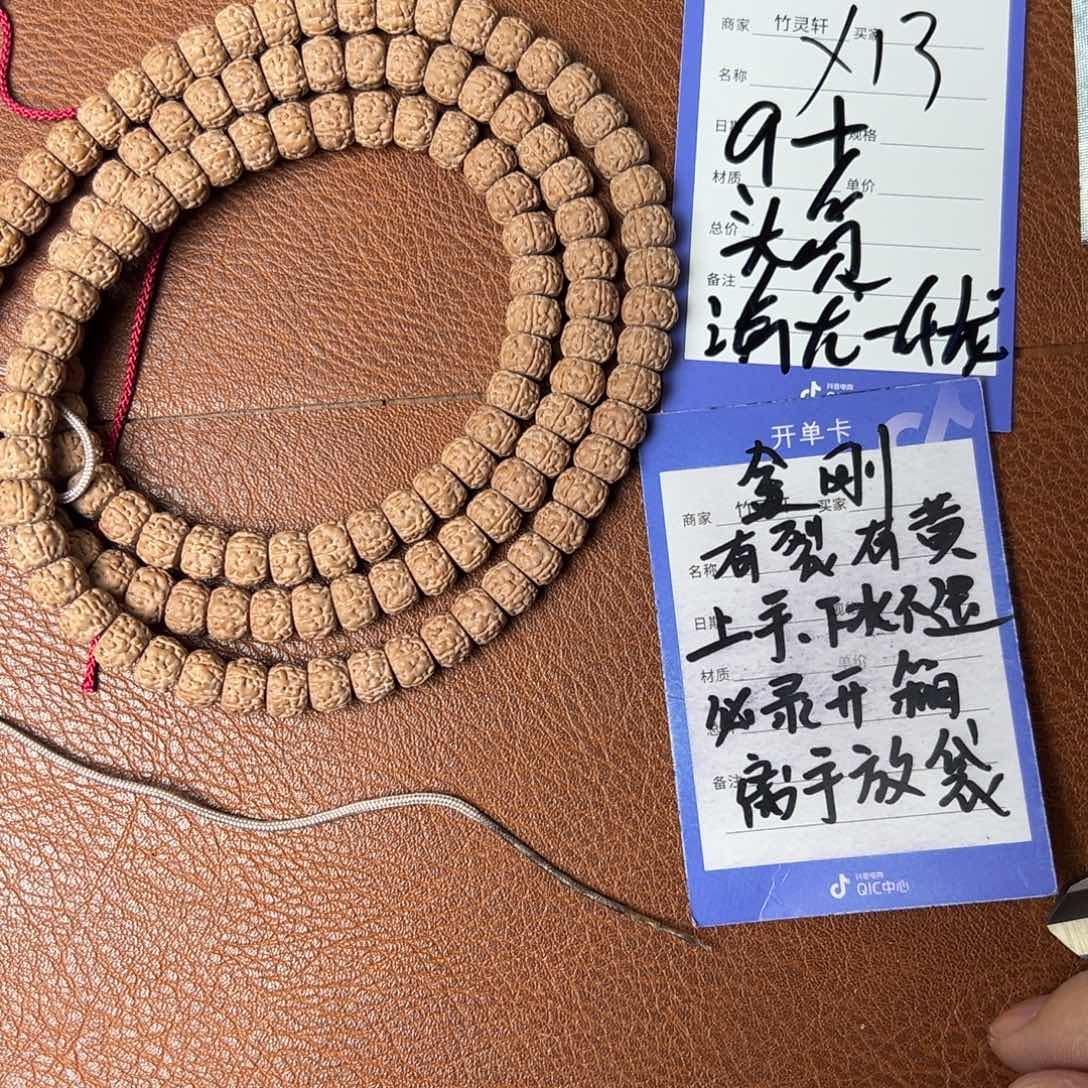 商家 竹灵轩 买家
X13
名称
日期 规格
9十
材质 单价
总价
头宽
备注
抖音电商
开单卡
金刚
商家 竹 轩 买家
有裂有黄
名称
日期
上手、下水不退
材质 单价
必录开箱
备注
离手放袋
抖音电商
QIC中心